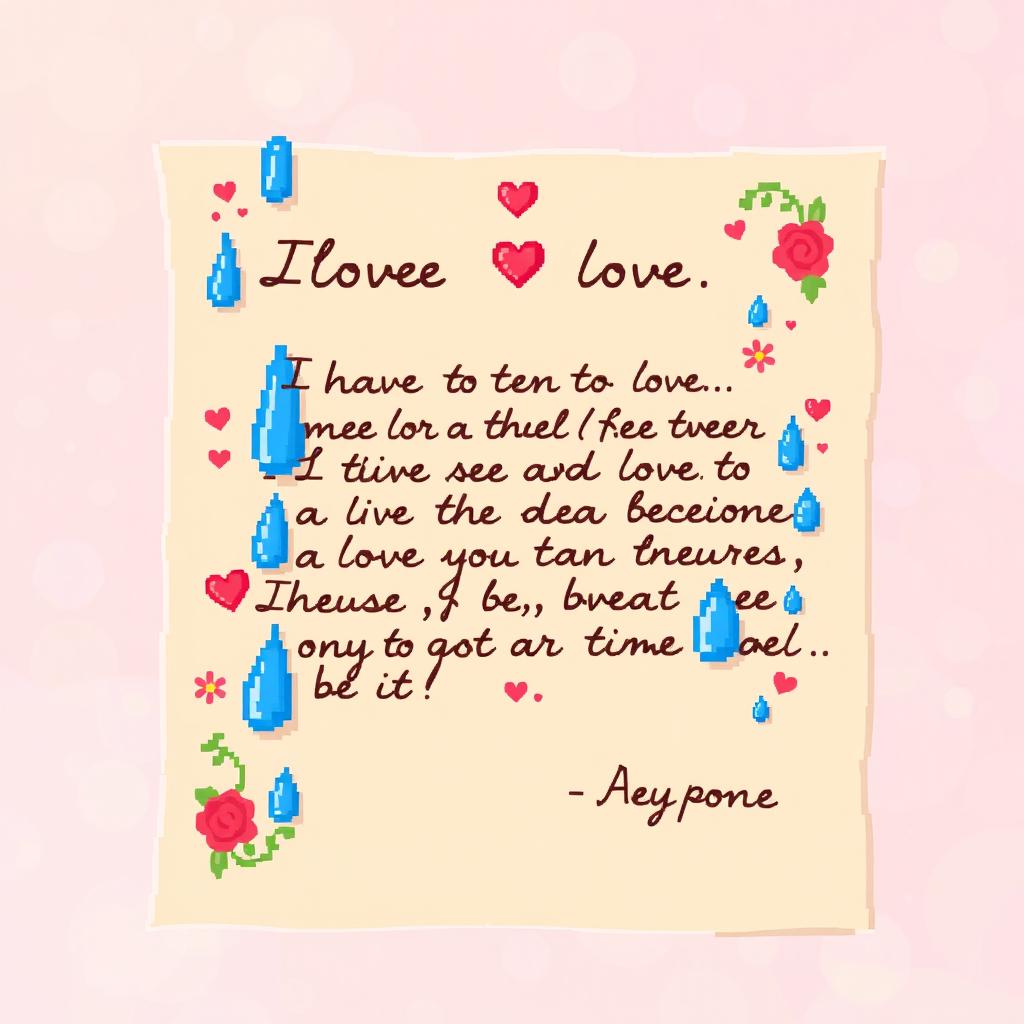 Ilovee love.
I have to ten to love...
mee lor a thuel (fee tweer
- I tiive see and love. to
a live the dea beceione
a love you tan tneures,
Iheuse , g be,, bveat ee
ony to got ar time ael ..
be it!
- Aey pone